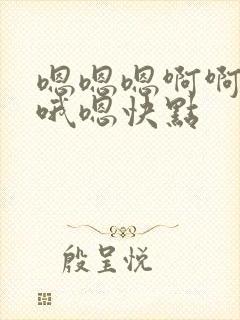 嗯嗯嗯啊啊
哦嗯快點
殷呈悦